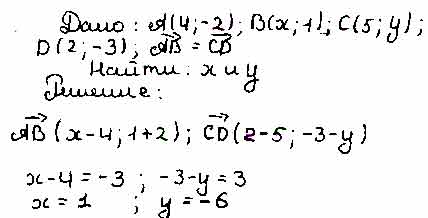 Дано: A(4;-2); B(x;1); C(5;y);
D(2;-3); AB = CD
Найти: x и y
Решение:
AB(x-4;1+2); CD(2-5;-3-y)
x-4=-3 ; -3-y=3
x=1 ; y=-6